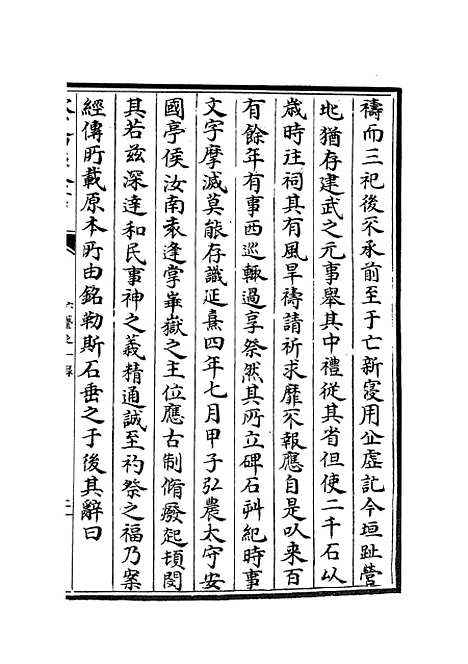 禱而三祀後不承前至于亡新寖用丘虛訖今垣趾營
地猶存建武之元事舉其中禮從其省但使二千石以
歲時往祠其有風旱禱請祈求靡不報應自是以來百
有餘年有事西巡輒過享祭然其所立碑石刻紀時事
文字摩滅莫能存識延熹四年七月甲子弘農太守安
國亭侯汝南袁逢掌華嶽之主位應古制脩廢起頓閔
其若茲深達和民事神之義精通誠至礿祭之福乃案
經傳所載原本所由銘勒斯石垂之于後其辭曰